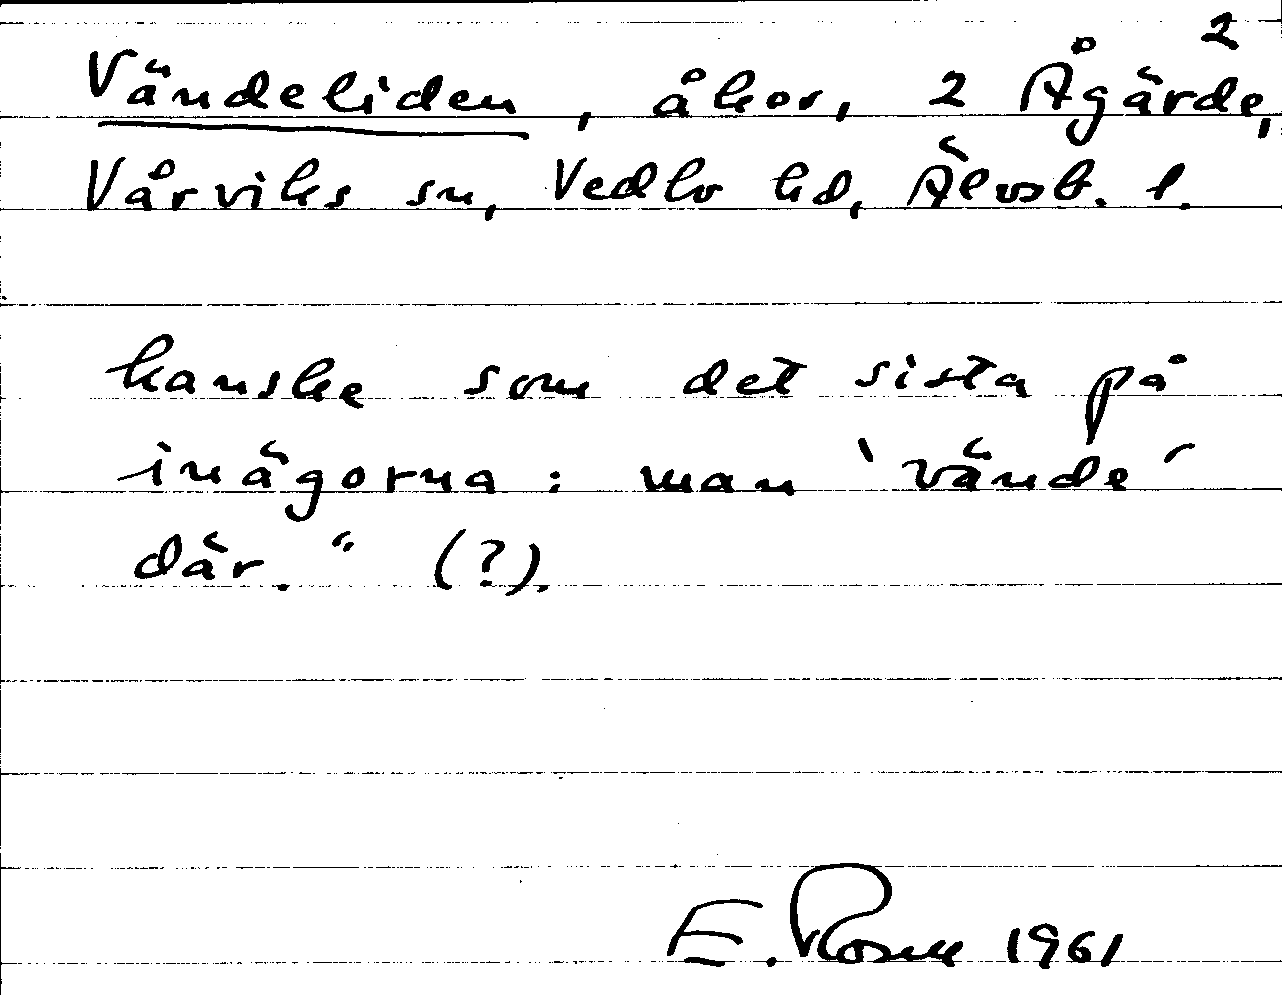 2
Vändeliden, åker, 2 Ågärde,
Vårviks sn, Vedbo hd, Älvsb. l.
kanske som det sista på
inägorna: man 'vände'
där." (?).
E. Rosell 1961